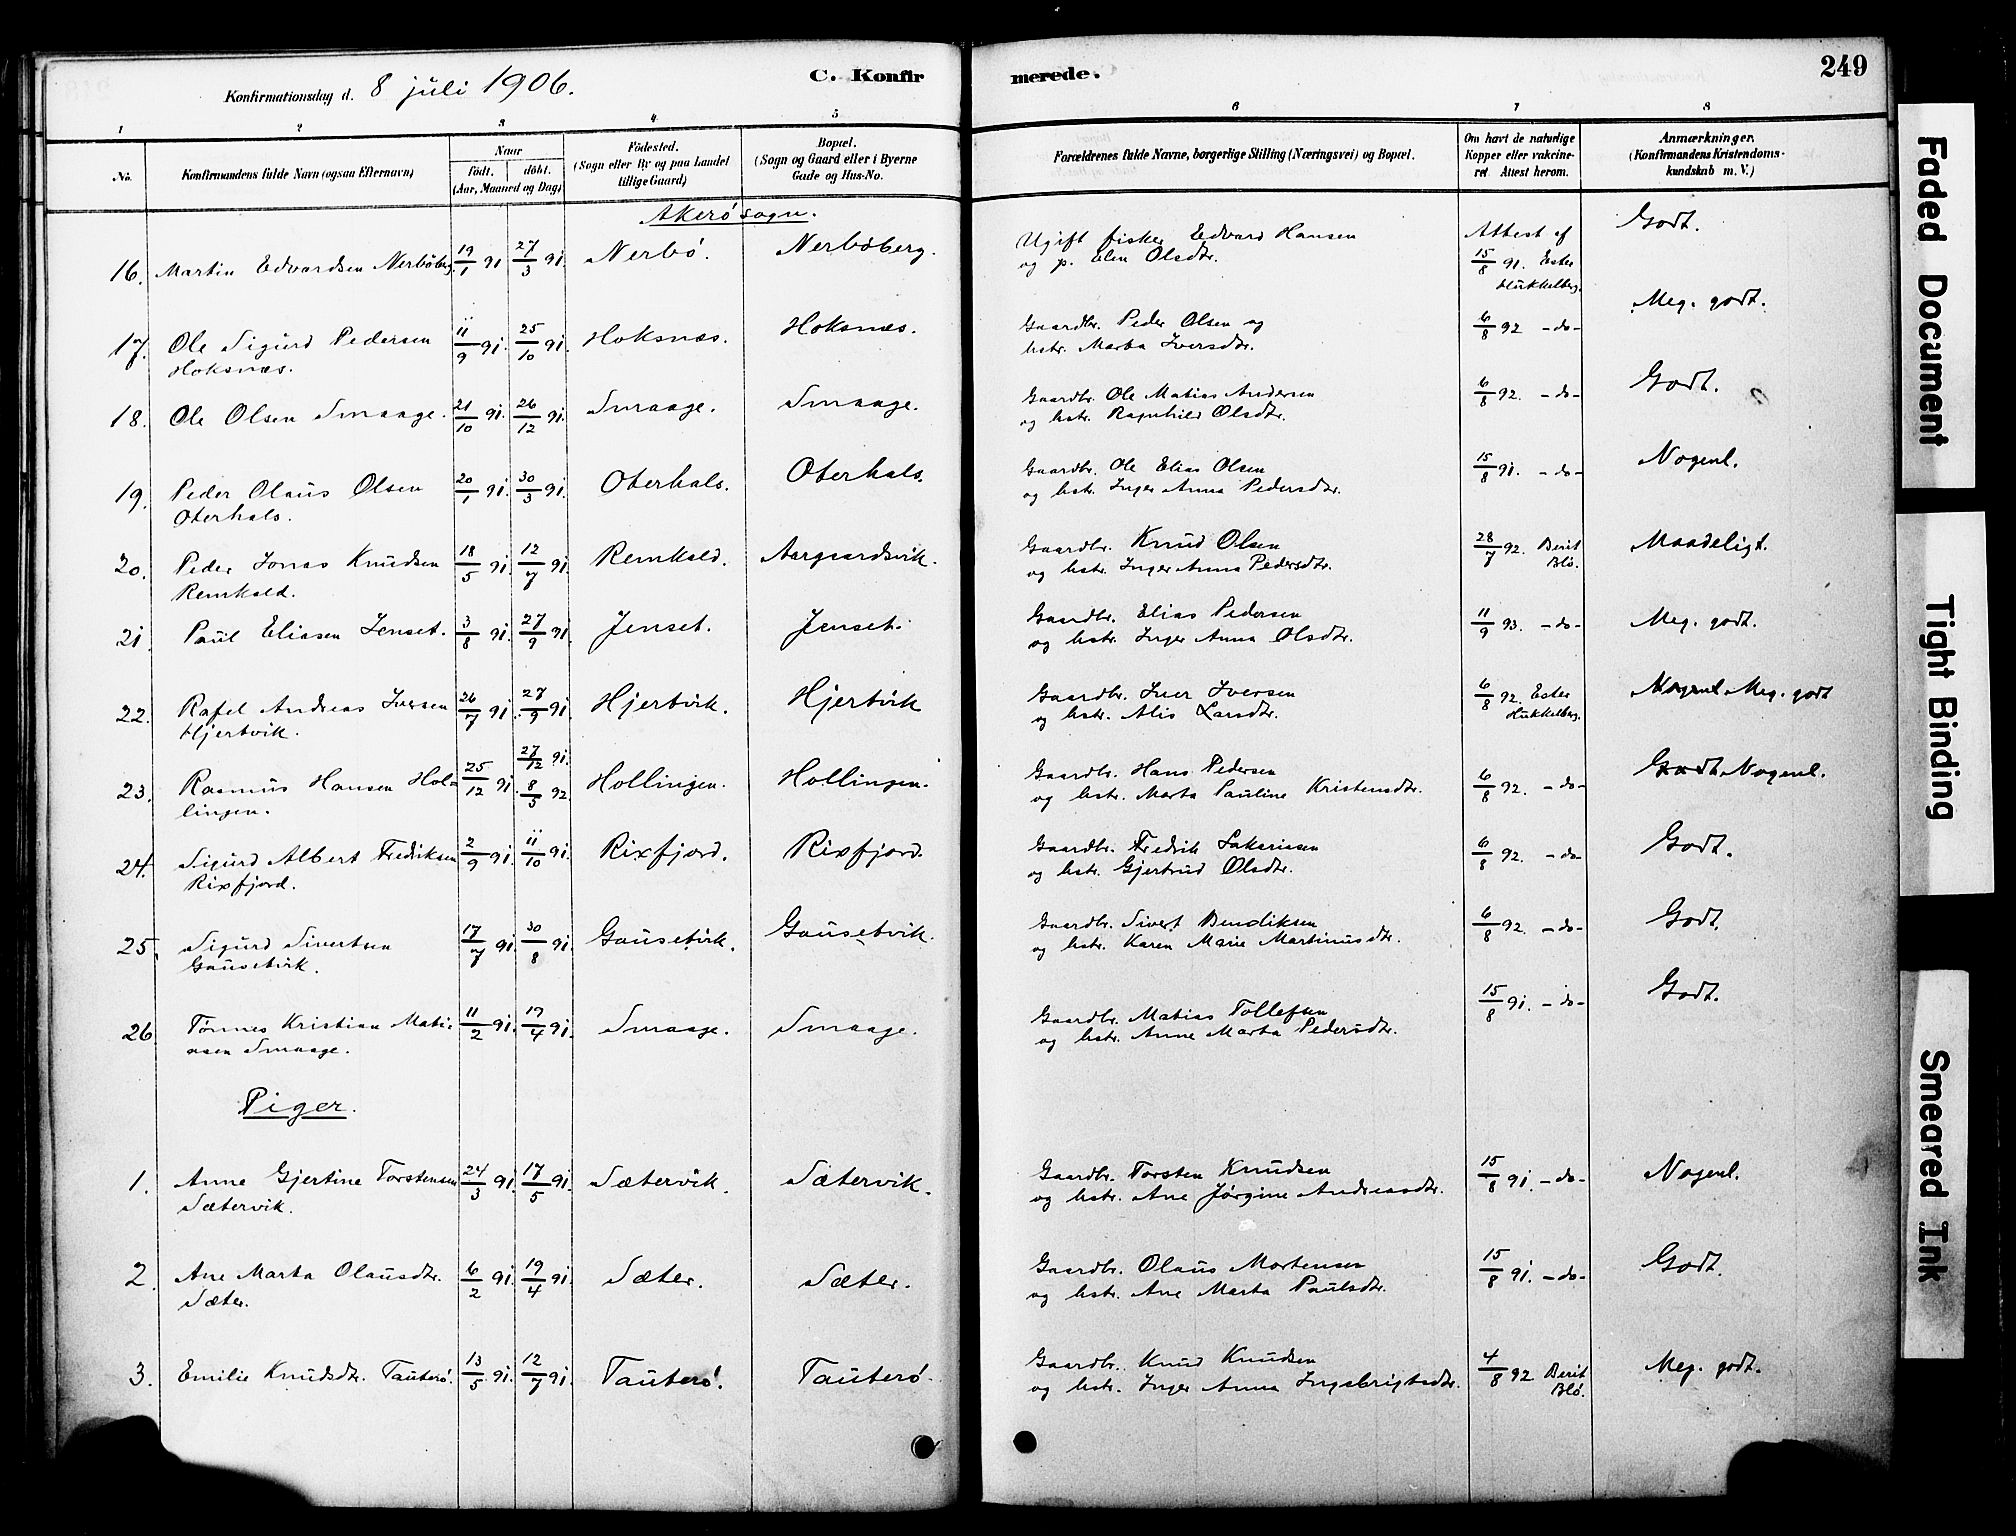 C. Konfirmerede.
249
Konfirmationsdag d. 8 juli 1906.
1 2 3 4 5 6 7 8
No.
Konfirmandens fulde Navn (ogsaa Efternavn)
Naar
födt. döbt.
(Aar, Maaned og Dag)
Födested.
(Sogn eller By og paa Landet
tillige Gaard)
Bopæl.
(Sogn og Gaard eller i Byerne
Gade og Hus-No.
Forældrenes fulde Navne, borgerlige Stilling (Næringsvei) og Bopæl.
Om havt de naturlige
Kopper eller vakcine-
ret Attest herom.
Anmærkninger.
(Konfirmandens Kristendoms-
kundskab m. V.)
Akerö sogn.
16. Martin Edvardsen Nerböberg 19/1 91 27/3 91. Nerbö. Nerböberg. Ugift fisker Edvard Hansen Attest af Godt.
og p. Elen Olsdtr. 15/8 91. Ester
Hukkelberg.
17. Ole Sigurd Pedersen 11/9 91. 25/10 91. Hoksnæs. Hoksnæs. Gaardbr. Peder Olsen og 6/8 92 -do- Meg. godt.
Hoksnæs. hstr. Marta Iversdtr.
18. Ole Olsen Smaage. 21/10 91. 26/12 91. Smaage. Smaage. Gaardbr. Ole Matias Andersen 6/8 92. -do- Godt.
og hstr. Ragnhild Olsdtr.
19. Peder Olaus Olsen 20/1 91. 30/3 91. Oterhals. Oterhals. Gaardbr. Ole Elias Olsen 15/8 91. -do- Nogenl.
Oterhals. og hstr. Inger Anna Pedersdtr.
20. Peder Jonas Knudsen 18/5 91. 12/7 91. Remkald. Aargaardsvik. Gaardbr. Knud Olsen 28/7 92. Berit Maadeligt.
Remkald. og hstr. Inger Anna Pedersdtr. Blö.
21 Paul Eliasen Jenset. 3/8 91. 27/9 91 Jenset. Jenset. Gaardbr. Elias Pedersen 11/9 93. -do- Meg. godt.
og hstr. Inger Anna Olsdtr.
22. Rafel Andreas Iversen 26/7 91. 27/9 91 Hjertvik. Hjertvik Gaardbr. Iver Iversen 6/8 92. Ester Nogenl Meg. godt
Hjertvik. og hstr. Alis Larsdtr. Hukkelberg.
23. Rasmus Hansen Hol- 25/12 91. 27/12 91. 8/5 92 Hollingen. Hollingen. Gaardbr. Hans Pedersen 6/8 92. -do- Godt. Nogenl.
lingen. og hstr. Marta Pauline Kristensdtr.
24. Sigurd Albert Fredriksen 2/9 91. 11/10 91. Rixfjord. Rixfjord. Gaardbr. Fredrik Sakariasen 6/8 92. -do- Godt.
Rixfjord. og hstr. Gjertrud Olsdtr.
25. Sigurd Sivertsen 17/7 91. 30/8 91. Gausetvik. Gausetvik. Gaardbr. Sivert Bendiksen 6/8 92. -do- Godt.
Gausetvik. og hstr. Karen Marie Martinusdtr.
26 Tönnes Kristian Mati- 11/2 91. 19/4 91. Smaage. Smaage. Gaardbr. Matias Tollefsen 15/8 91. -do- Godt.
asen Smaage. og hstr. Anne Marta Pedersdtr.
Piger.
1. Anne Gjertine Torstensen 24/3 91. 17/5 91. Sætervik. Sætervik. Gaardbr. Torsten Knudsen 15/8 91. -do- Nogenl.
Sætervik. og hstr. Ane Jörgine Andreasdtr.
2. Ane Marta Olausdtr. 6/2 91. 19/4 91. Sæter. Sæter. Gaardbr. Olaus Mortensen 15/8 91. -do- Godt.
Sæter. og hstr. Ane Marta Paulsdtr.
3. Emilie Knudsdtr. Tauterö. 13/5 91. 12/7 91. Tauterö. Tauterö. Gaardbr. Knud Knudsen 4/8 92 Berit Meg. godt.
og hstr. Inger Anna Ingebrigtsdtr. Blö.
Faded Document
Tight Binding
Smeared Ink